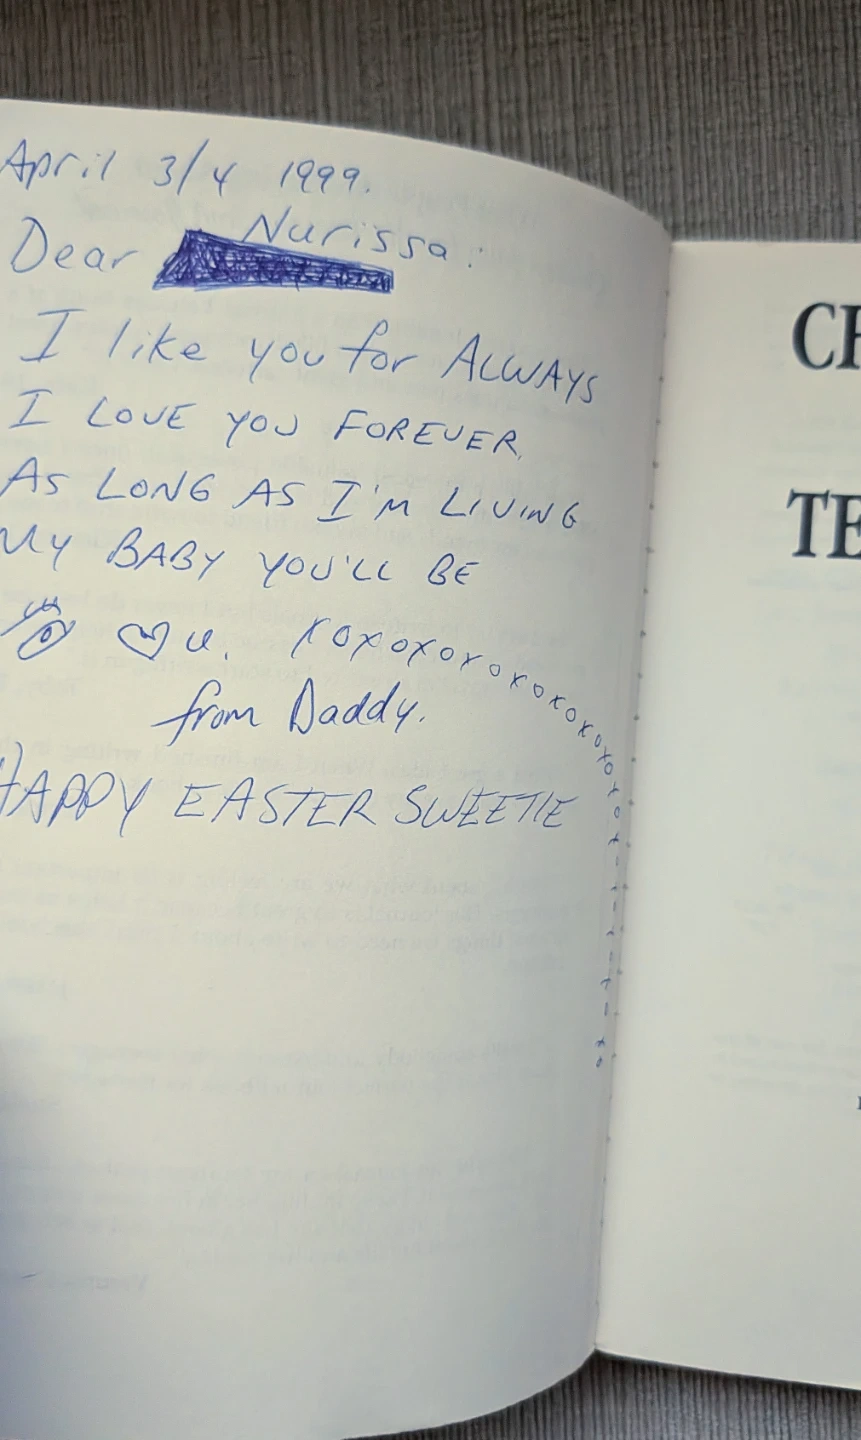 April 3/4 1999.
Dear Nurissa:
I like you for ALWAYS
I LOVE YOU FOREVER,
AS LONG AS I'M LIVING
MY BABY YOU'LL BE
♡ U. XOXOXOXOXOXOXOXOXOXOX
from Daddy.
HAPPY EASTER SWEETIE
CH
TE